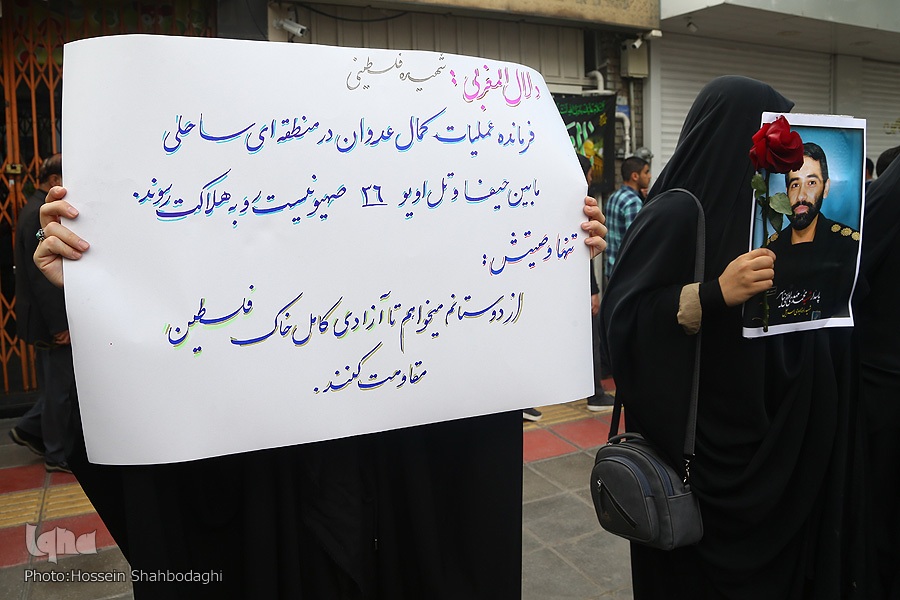 دلال المغربی : شهیده فلسطینی
فرمانده عملیات کمال عدوان در منطقه ای ساحلی
مابین حیفا و تل اویو ۲۶ صهیونیست رو به هلاکت رسوند.
تنها وصیتش :
از دوستانم میخواهم تا آزادی کامل خاک فلسطین
مقاومت کنند .
پاسدار
iqna
Photo:Hossein Shahbodaghi